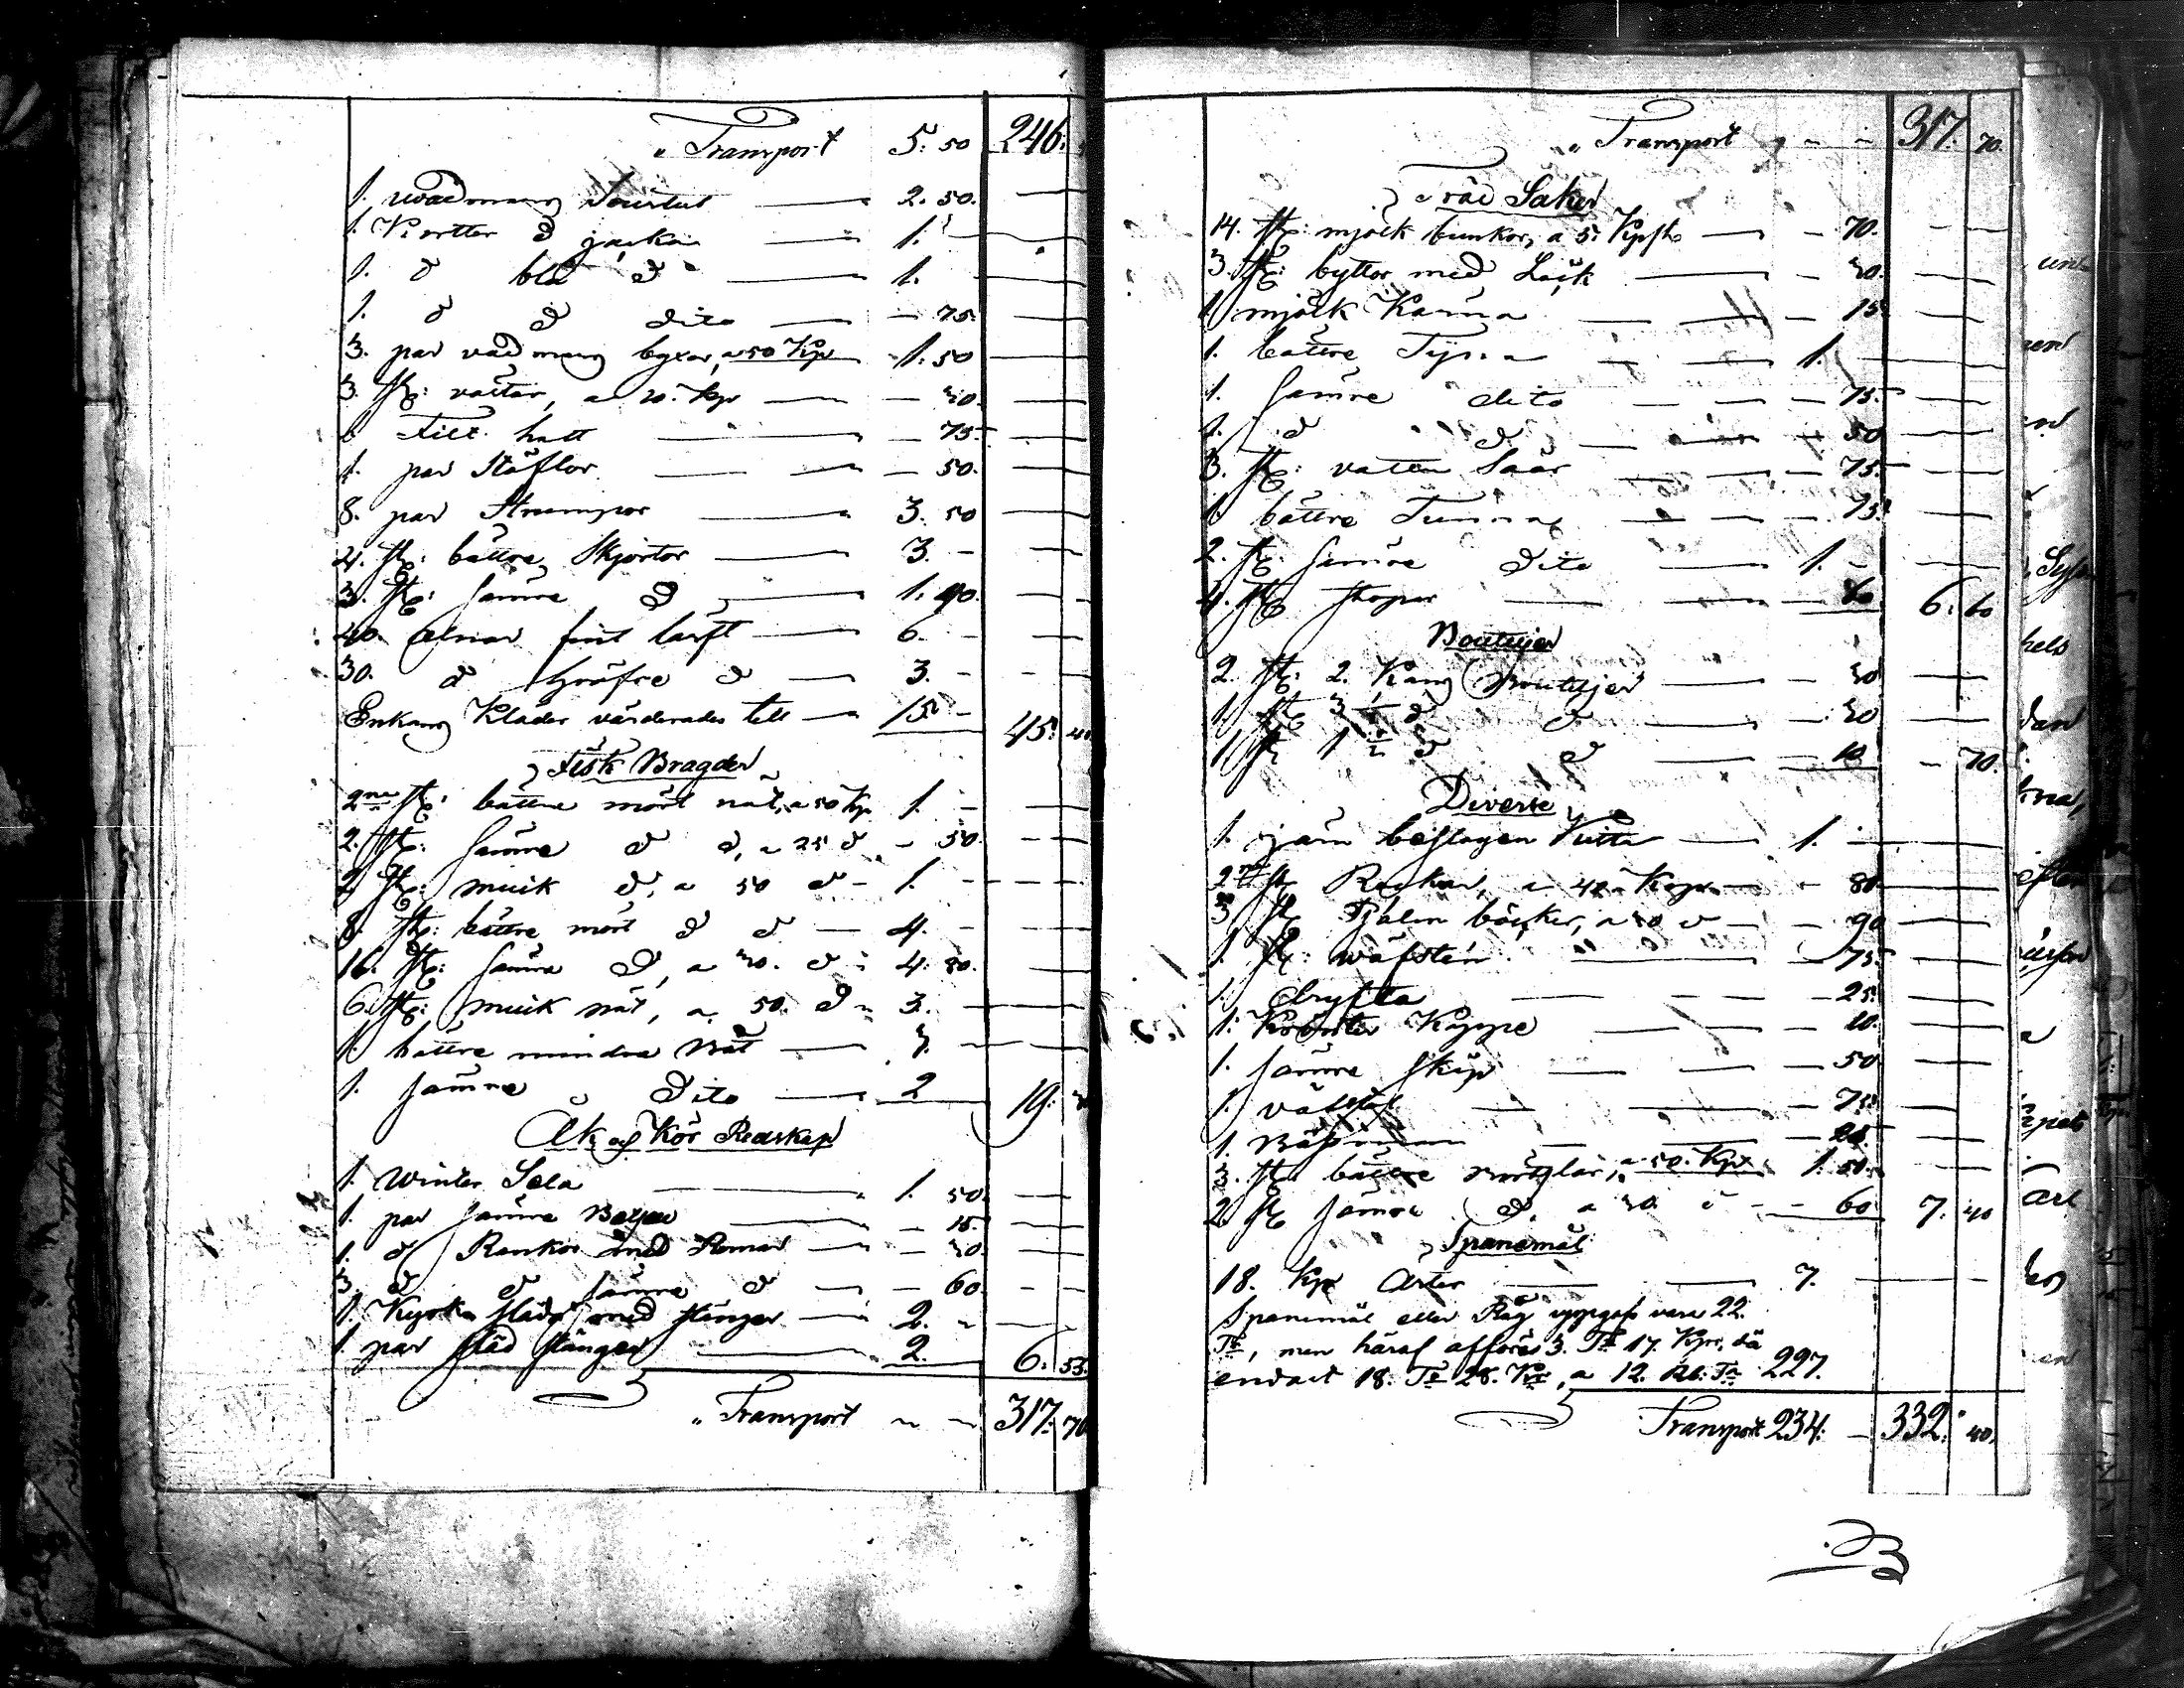 „ Transport 5. 50 246:
1. wadmans Sourtut 2. 50.
1. Kortter d jacka 1.
1. d blå d 1.
1. d d dito 75.
3. par vadmans byxor, a 50 Kp 1. 50
3. st: västar, a 10. Kp 30.
1 Filt hatt 75
1. par Stöflor 50.
8. par Strumpor 3. 50
4. st: bättre Skjortor 3. -
3. st: sämre d 1. 90.
40. alnar fint lärft 6. -
30. d gröfre d 3. -
Enkans Kläder värderades till 15 - 45: 40
Fisk Bragder
2ne st: bättre mört nät, a 50 Kp 1. -
2. st: sämre d d, a 25 d 50.
2 st: muik d, a 50 d 1. -
8. st: bättre mört d d 4. -
16. st: sämre d, a 30. d 4. 80.
6. st: muik nät, a 50. d 3.
1. bättre mindre Båt
1. sämre Dito 2 19:
Åk och Kör Redskap
1. Winter Sela 1. 50.
1. par sämre 15.
1. d Rankor med Remar 30.
3. d d sämre d 60.
1. Kyrko släde med stänger 2.
1. par släd stänger 2. 6. 55.
„ Transport 317: 70
„ Transport 317. 70.
Träd Saker
14. st: mjölk bunkor, a 5. Kp st 70.
3. st: byttor med Låck 30.
1 mjölk Kärna 15
1. bättre Tyna 1.
1. sämre dito 75.
1. d d 50
3. st: vatten Såar 75.
1 bättre Tunna 75.
2. st: sämre Dito 1. -
4. st stopar 60 6. 60
Bouteljer
2. st: 2. Kans Bouteljer 30
1. st d d 30
1 st 1 ½ d d 10 - 70.
Diverse
1. järn beslagen Kitta 1.
2ne st Rockar, a 40 Kopr 80.
3 st Tjälm böcker, a 30 d 90
1. st: wäfsten 75.
1. dryfta 25.
1. Kippe 10.
1. sämre Skåp 50
1. vä 75.
1. Bä
3. st bättre, a 50. Kp 1. 50.
2 st sämre d. a 30 d 60 7. 40
Spanemål
18. Kp Ärter 7.
Spanemål eller Råg uppgafs vara 22.
Tr, men häraf afföres 3. Tr 17. Kpr, då
endast 18. Tr 28. Kp, a 12. Rb: Tr 227.
Transport 234. 332: 40.